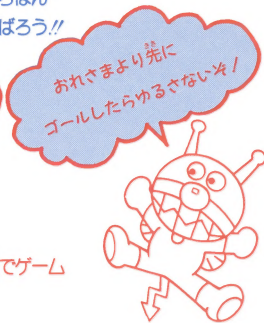 ちばん
ばろう!!
おれさまより先に
ゴールしたらゆるさないぞ!
でゲーム